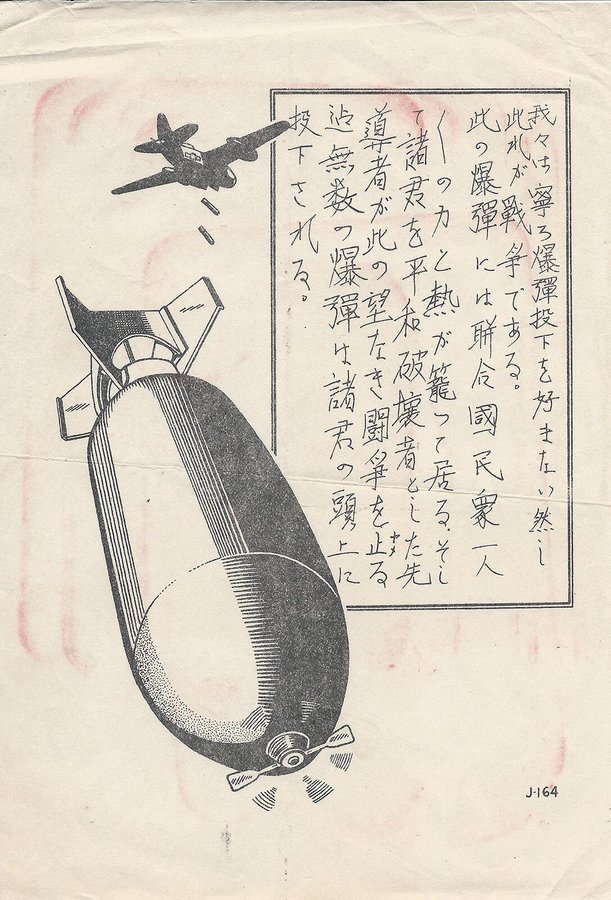 我々は寧ろ爆彈投下を好まない然し
此れが戰爭である。
此の爆彈には聯合國民衆一人
〱の力と熱が籠って居る、そし
て諸君を平和破壊者とした先
導者が此の望なき闘爭を止る
ヤメ
迠無数の爆彈は諸君の頭上に
投下される。
J-164